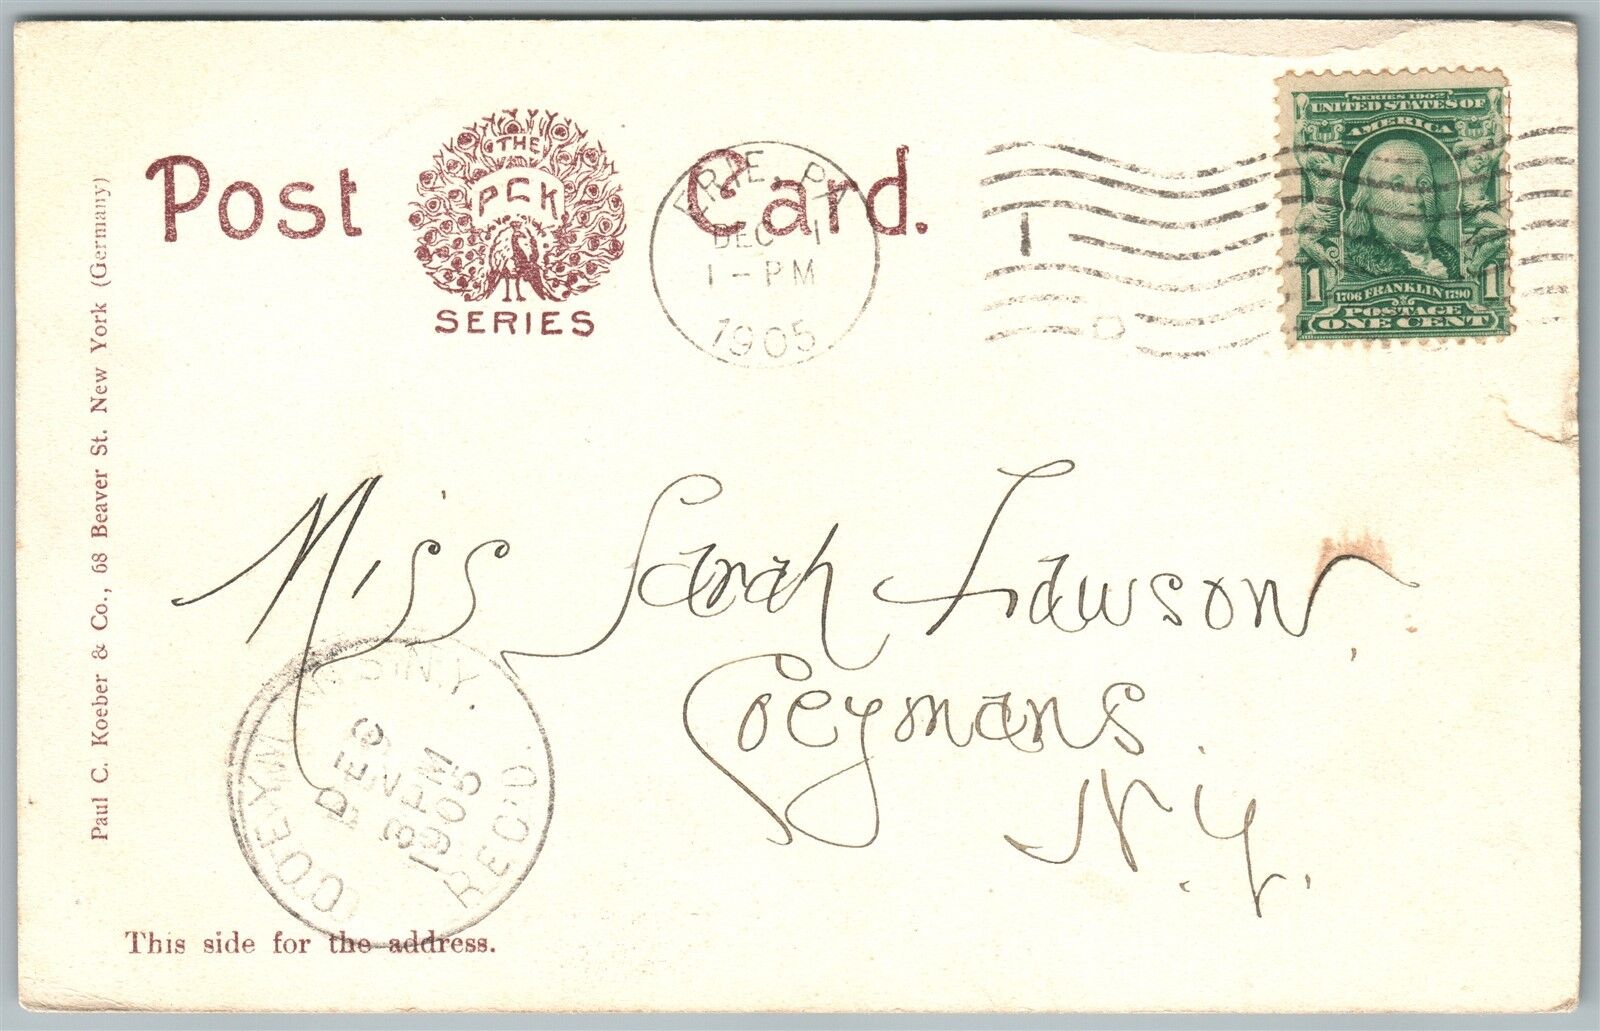 Post Card.
THE
PCK
SERIES
ERIE, PA
DEC 1
1 - PM
1905
1
SERIES 1902
UNITED STATES OF
AMERICA
1 1
1706 FRANKLIN 1790
POSTAGE
ONE CENT
Paul C. Koeber & Co., 68 Beaver St. New York (Germany)
Miss Sarah Lawson.
Coeymans.
N.Y.
N.Y.
DEC
2
3 PM
1905
REC'D.
This side for the address.